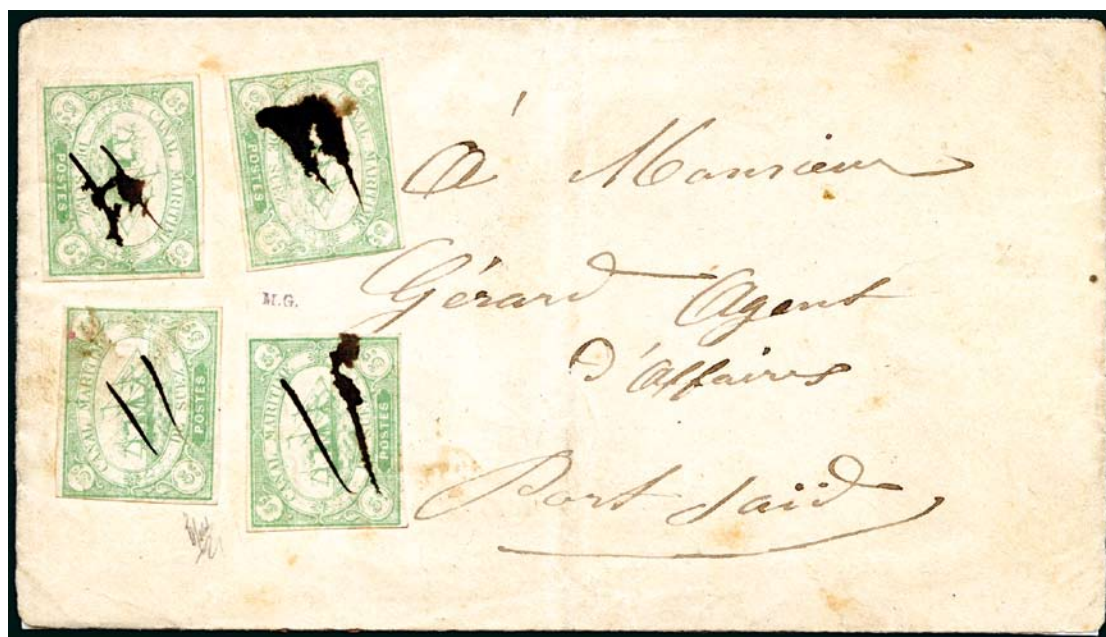 CANAL MARITIME DE SUEZ
POSTES
5
CANAL MARITIME DE SUEZ
POSTES
5
M.G.
CANAL MARITIME DE SUEZ
POSTES
5
CANAL MARITIME
POSTES
5
À Monsieur
Gérard Agent
D'affaires
Port Saïd